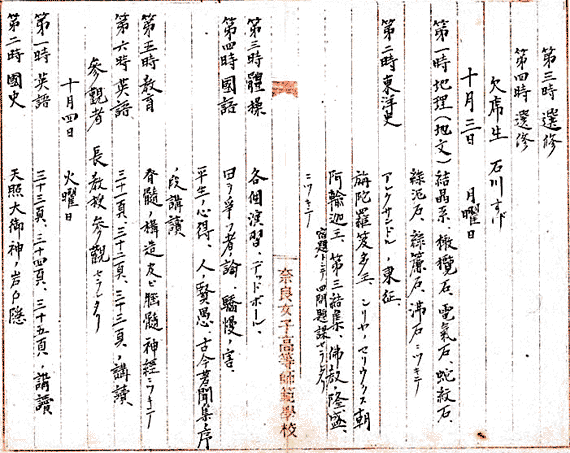 第三時 選修
第四時 選修
欠席生 石川
十月三日 月曜日
第一時 地理(地文) 結晶系、橄欖石、電氣石、蛇紋石、
綠泥石、綠簾石、沸石ニツキテ
第二時 東洋史 アレクサンドル、東征、
旃陀羅笈多王、シリヤ、セリウクス朝
阿輸迦王、第三結集、佛教ノ隆盛、
ニツキテ 宿題トシテ四問題課セラレタリ
奈良女子高等師範學校
第三時 體操 各個演習、デッドボール、
第四時 國語 曰ヲ爭フ者ノ論、驕慢ノ害、
平生ノ心得、人ノ賢愚、古今著聞集ノ序
ノ段講讀
第五時 教育 脊髓ノ構造及ビ腦髓神經ニツキテ
第六時 英語 三十一頁、三十二頁、三十三頁、講讀
參觀者 長教授參觀セラレタリ
十月四日 火曜日
第一時 英語 三十三頁、三十四頁、三十五頁、講讀
第二時 國史 天照大御神ノ岩戸隱